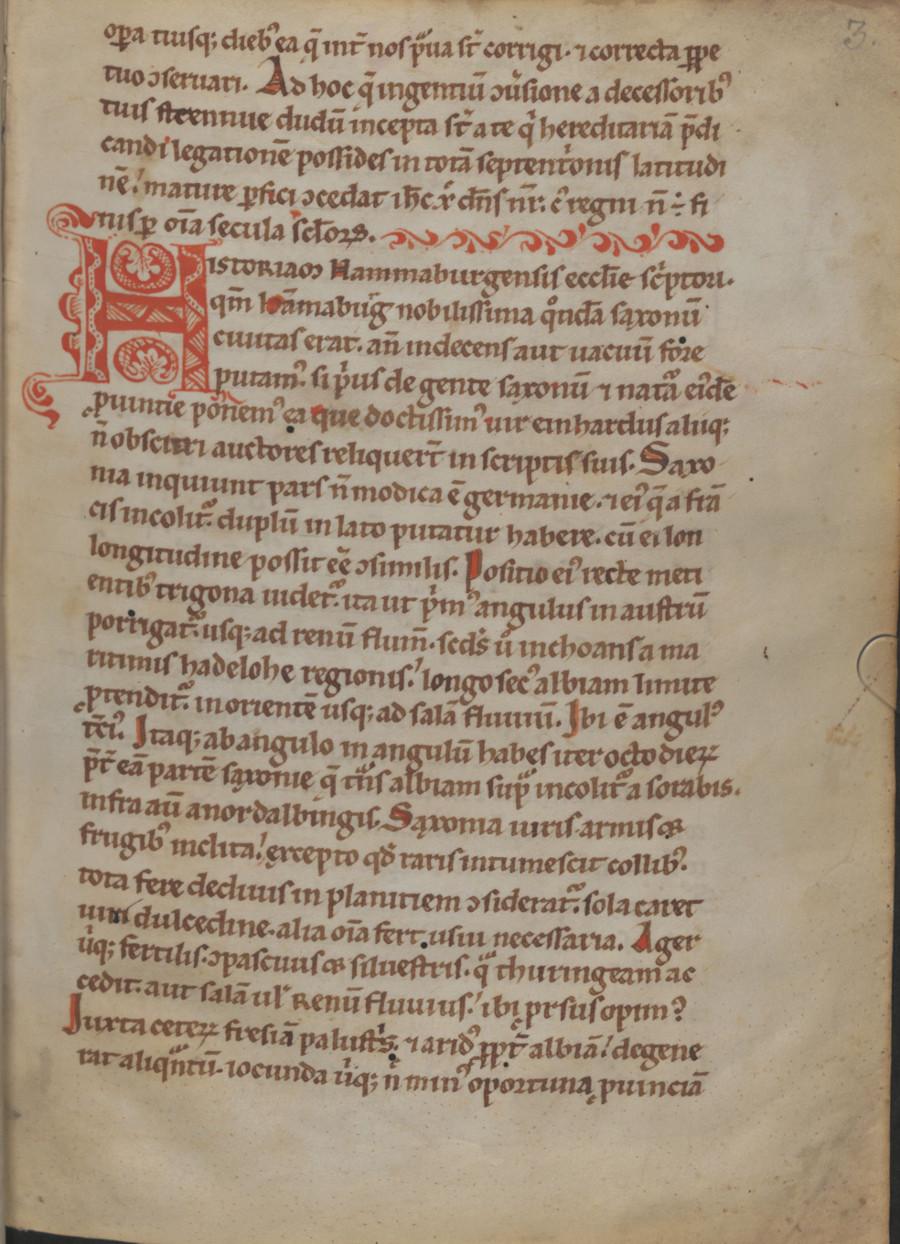 3.
oꝑa tuisq; dieb⁹ ea q̄ int̄ nos ꝑ̄ua st̄ corrigi· ⁊ correcta ꝑpe
tuo ꝯseruari. Ad hoc q̄ ingentiū ꝯu̓sione a decessorib⁹
tuis strennue dudū incepta st̄ a te qͥ hereditariā p̄di
candi legationē possides in totā septent̓onis latitudi
nē! mature ꝑfici ꝯcedat ih̄c xͬ dn̄s nr̄· c̓ regni n̄ ÷ fi
nis ꝑ oīa secula sc̄loꝝ.
Historiam Hammaburgensis eccl̄ie sc̓pturi·
qm̄ hāmaburg̓ nobilissima qͦndā saxonū
ciuitas erat· aū indecens aut uacuū fore
putam⁹· si pͥus de gente saxonū ⁊ natͣa ei⁹dē
ꝓuintie ponem⁹ ea que doctissim⁹ uir einhardus aliiq;
n̄ obscuri auctores reliquert̄ in scriptis suis. Saxo
nia inquiunt pars n̄ modica ē germanie· ⁊ ei⁹ q̄ a frā
cis incolit᷑· duplū in lato putatur habere· cū ei lon
longitudine possit eē ꝯsimilis. Positio ei⁹ recte meti
entib⁹ trigona uidet᷑· ita ut pͥm⁹ angulus in austrū
porrigat᷑ usq; ad renū flum̄· scd̄s u̓ inchoans a ma
ritimis hadelohe regionis! longo sec⁹ albiam limite
ꝓtendit᷑ in orientē usq; ad salā fluuiū. Ibi ē angul⁹
tc̄i⁹. Itaq; ab angulo in angulū habes iter octo dieꝝ
p̄t̄ eā partē saxonie q̄ tͣns albiam supͣ incolit᷑ a sorabis·
infra aū a nordalbingis. Saxonia uiris armis &
frugib⁹ inclita! excepto qd̄ raris intumescit collib⁹·
tota fere decliuis in planitiem ꝯsiderat᷑· sola caret
uini dulcedine· alia oīa fert usui necessaria. Ager
u̓q; fertilis· ꝯpascuus & siluestris· qͣ thuringeam ac
cedit· aut salā ul̓ Renū fluuius! ibi ꝓrsus opim⁹
Iuxta ceteꝝ fresiā palust̓s· ⁊ arid⁹ ꝓpt̄ albiā! degene
rat aliqͣntū· iocunda u̓q; n̄ min⁹ oportuna ꝓuinciā